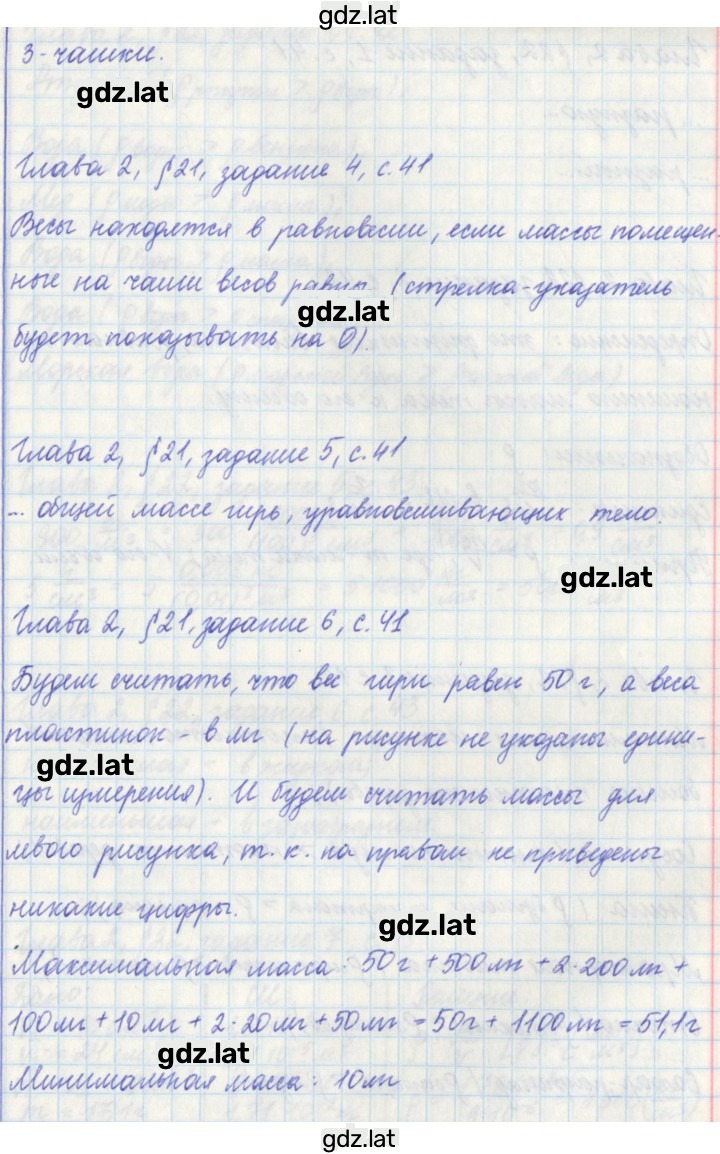 gdz.lat
3-чашки.
gdz.lat
Глава 2, §21, задание 4, с.41
Весы находятся в равновесии, если массы помещен-
ные на чаши весов равны (стрелка-указатель
gdz.lat
будет показывать на 0).
Глава 2, §21, задание 5, с.41
... общей массе гирь, уравновешивающих тело.
gdz.lat
Глава 2, §21, задание 6, с.41
Будем считать, что вес гири равен 50 г, а веса
пластинок - в мг (на рисунке не указаны едини-
gdz.lat
цы измерения). И будем считать массы для
левого рисунка, т. к. на правом не приведены
никакие цифры.
gdz.lat
Максимальная масса: 50г + 500мг + 2·200мг +
100мг + 10мг + 2·20мг + 50мг = 50г + 1100мг = 51,1г
gdz.lat
Минимальная масса: 10мг
gdz.lat